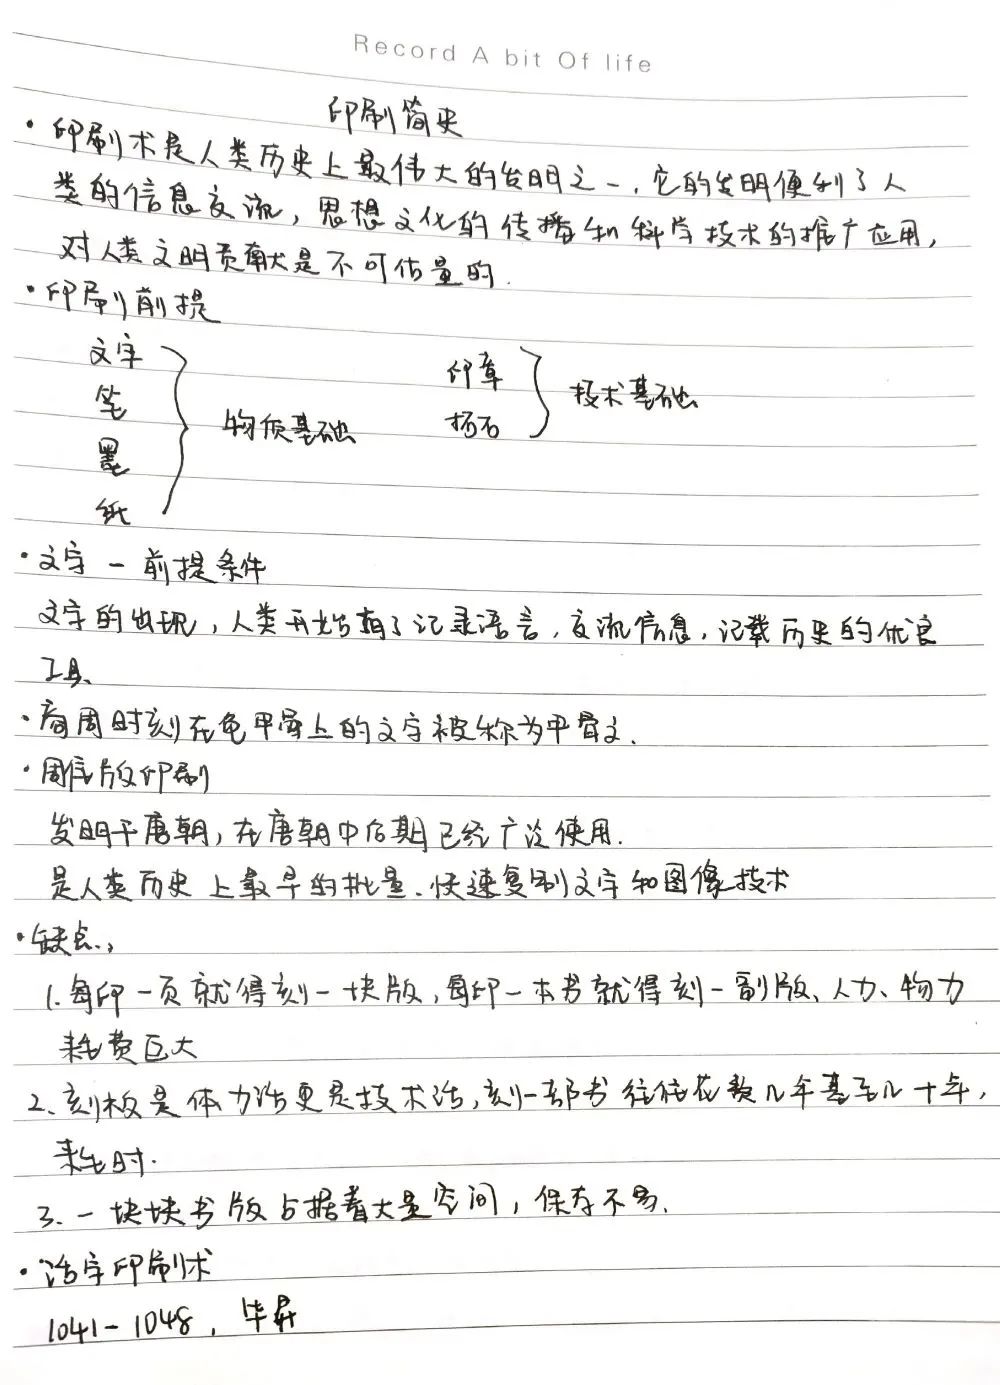 Record A bit Of life
印刷简史
·印刷术是人类历史上最伟大的发明之一,它的发明便利了人
类的信息交流,思想文化的传播和科学技术的推广应用,
对人类文明贡献是不可估量的.
·印刷前提
文字
笔
墨
纸
物质基础
印章
拓石
技术基础
·文字 - 前提条件
文字的出现,人类开始有了记录语言,交流信息,记载历史的优良
工具.
·商周时刻在龟甲骨上的文字被称为甲骨文.
·版印刷
发明于唐朝,在唐朝中后期已经广泛使用.
是人类历史上最早的批量.快速复制文字和图像技术
·缺点:
1.每印一页就得刻一块版,每印一本书就得刻一副版、人力、物力
耗费巨大
2.刻板是体力活更是技术活,刻一部书往往花费几年甚至几十年,
耗时.
3.一块块书版占据着大量空间,保存不易.
·活字印刷术
1041-1048,毕昇